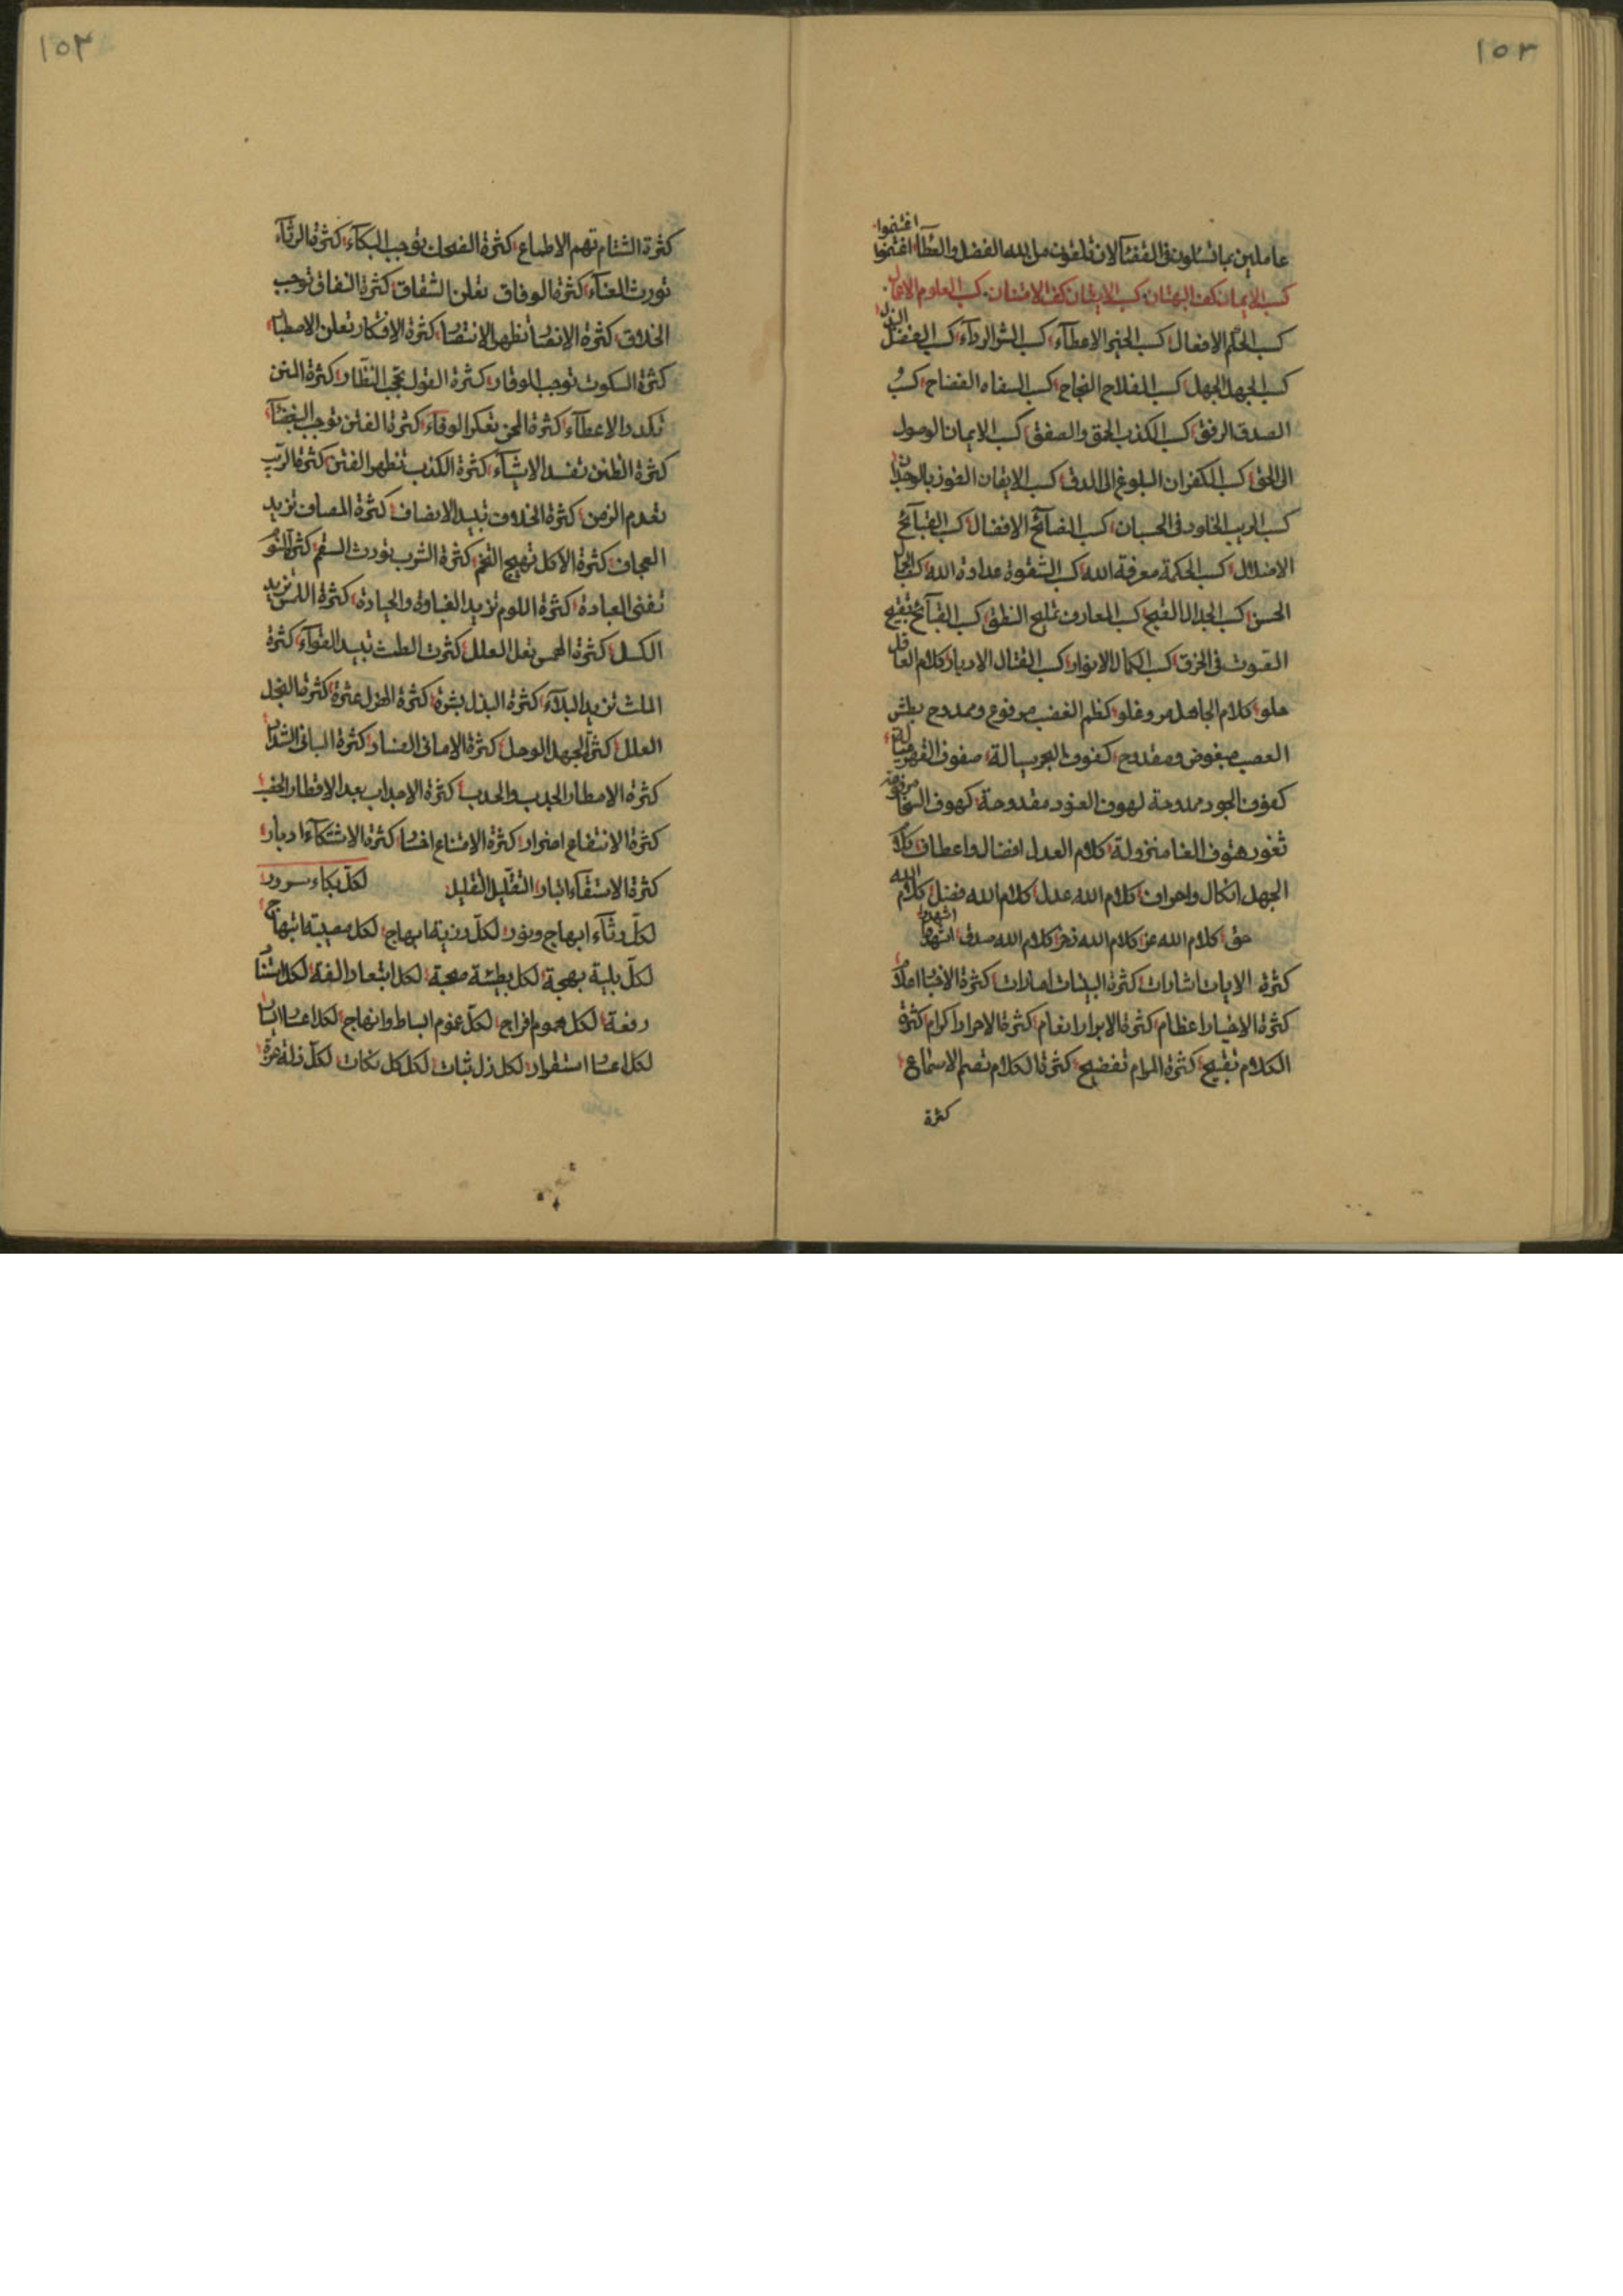 ١٥٢
عاملين بما تسئلون فى القضآ الان تلقون من الله الفضل والعطآ اغتنموا اغتنموا
كسب الايمان كف البهتان كسب الايقان كف الامتنان كسب العلوم الاعمال
كسب الحلم الافضال كسب الخير الاعطآء كسب الشر الردآء كسب الفضل البذل
كسب الجهل الجهل كسب الفلاح النجاح كسب السفاه الفضاح كسب
الصدق الرفق كسب الكذب الحمق والصفق كسب الايمان الوصول
الى الحق كسب الكفران البلوغ الى الدق كسب الايقان الفوز بالوجدان
كسب الريب الخلود فى الحسبان كسب النصآئح الافضال كسب القبآئح
الاضلال كسب الحكمة معرفة الله كسب الشقوة عداوة الله كسب الجمال
الحسن كسب الجدال القبيح كسب المعارف تمليح النطق كسب القبآئح تقبيح
الصوت فى الخرق كسب الكمال الانوار كسب القتال الادبار كلام العاقل
حلو كلام الجاهل مر وغلو كظم الغضب مرفوع وممدوح بطش
الغضب مبغوض ومقدوح كفوف الجود سيالة صفوف القهر ميالة
كفوف الجود ممدوحة لهوف العنود مقدوحة كهوف السخا مرفوعة
ثغور هتوف الغنا منزولة كلام العدل افضال واعطاف كلام
الجهل انكال واحراف كلام الله عدل كلام الله فضل كلام الله
حق كلام الله عز كلام الله فخر كلام الله صدق اشهدوا
كثرة الايات اشارات كثرة البينات امارات كثرة الاخبار املآء
كثرة الاخيار اعظام كثرة الابرار انعام كثرة الاحرار اكرام كثرة
الكلام تقبيح كثرة المرام تفضيح كثرة الكلام تصم الاستماع
كثرة
١٥٣
كثرة الشتام تهم الاطماع كثرة الضحك توجب البكآء كثرة الرثآء
تورث الغنآء كثرة الوفاق تعلن الشقاق كثرة النفاق توجب
الخلاق كثرة الانتصار تظهر الانتصار كثرة الافتكار تعلن الاصطبار
كثرة السكوت توجب الوقار كثرة القول تحجب النظار كثرة المنن
تكدر الاعطآء كثرة المحن تعكر الوقاء كثرة الفتن توجب البغضآء
كثرة الظنن تفسد الاشيآء كثرة الكذب تظهر الفتن كثرة الريب
تعدم الزمن كثرة الخلاف تبيد الانصاف كثرة المصاف تزيد
العجاف كثرة الاكل تهيج التخم كثرة الشرب تورث السقم كثرة النوم
تفنى العبادة كثرة اللوم تزيد الغباوة والحيادة كثرة اللمس تزيد
الكسل كثرة الحمس تعل العلل كثرت الطمث تبيد القوآء كثرة
الملث تزيد البلآء كثرة البذل بشرة كثرة الهزل عثرة كثرة البخل
العلل كثرة الجهل الوحل كثرة الامانى الفساد كثرة المبانى الشداد
كثرة الامطار الجدب والحدب كثرة الاجداب بعد الاقطار الخصب
كثرة الانتفاع اضرار كثرة الامتناع اخسار كثرة الاشتكآء ادبار
كثرة الاستقآء انبار التقليل التقليل لكل بكاء سرور
لكل رثآء ابهاج ونور لكل رزية ابهاج لكل مصيبة ابتهاج
لكل بلية بهجة لكل بطيئة صحبة لكل ابتعاد الفة لكل امتنآء
رفعة لكل هموم افراج لكل غموم انبساط وانهاج لكل اعسار ايسار
لكل اعسار استقرار لكل زل ثبات لكل كل نكات لكل ذلة عزة